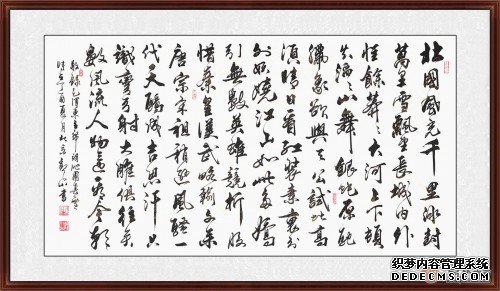 北國風光千里冰封
萬里雪飄望長城内外
惟餘莽莽大河上下頓
失滔滔山舞銀蛇原馳
蠟象欲與天公試比高
須晴日看紅裝素裹分
外妖嬈江山如此多嬌
引無數英雄競折腰
惜秦皇漢武略輸文采
唐宗宋祖稍遜風騷一
代天驕成吉思汗只
識彎弓射大雕俱往矣
數風流人物還看今朝
敬錄毛澤東主席詞沁園春雪
時在丁酉夏月北京 山書
织梦内容管理系统
DEDECMS.COM